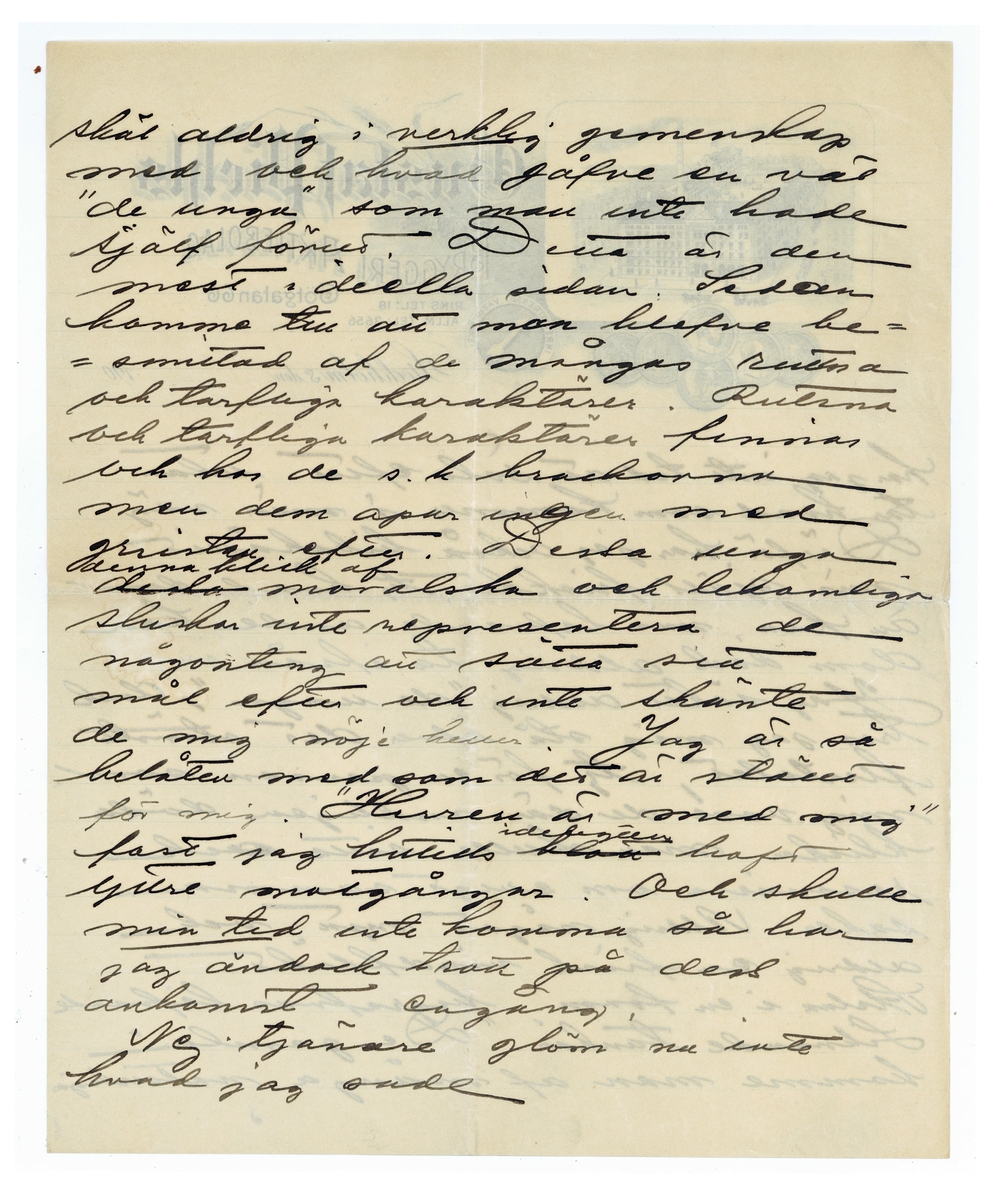 skäl aldrig i verklig gemenskap
med och hvad gåfve en väl
"de unga" som man inte hade
sjelf förut. Detta är den
mest idiella sidan. Sedan
komme till att man blefve be=
=smittad af de mångas ruttna
och tarfliga karaktärer. Ruttna
och tarfliga karaktärer finnas
och hos de s.k brackorna
men dem apar ingen med
gnistan efter. Dessa unga
denna klick af
dessa moralska och lekamliga
sluskar inte representera de
någonting att sätta sitt
mål efter och inte skänte
de mig nöje heller. Jag är så
belåten med som det är stäldt
för mig. "Herren är med mig"
fast jag hittils blott haft
idkeligen
yttre motgångar. Och skulle
min tid inte komma så har
jag ändock trott på dess
ankomst engång.
Nej tjänare glöm nu inte
hvad jag sade